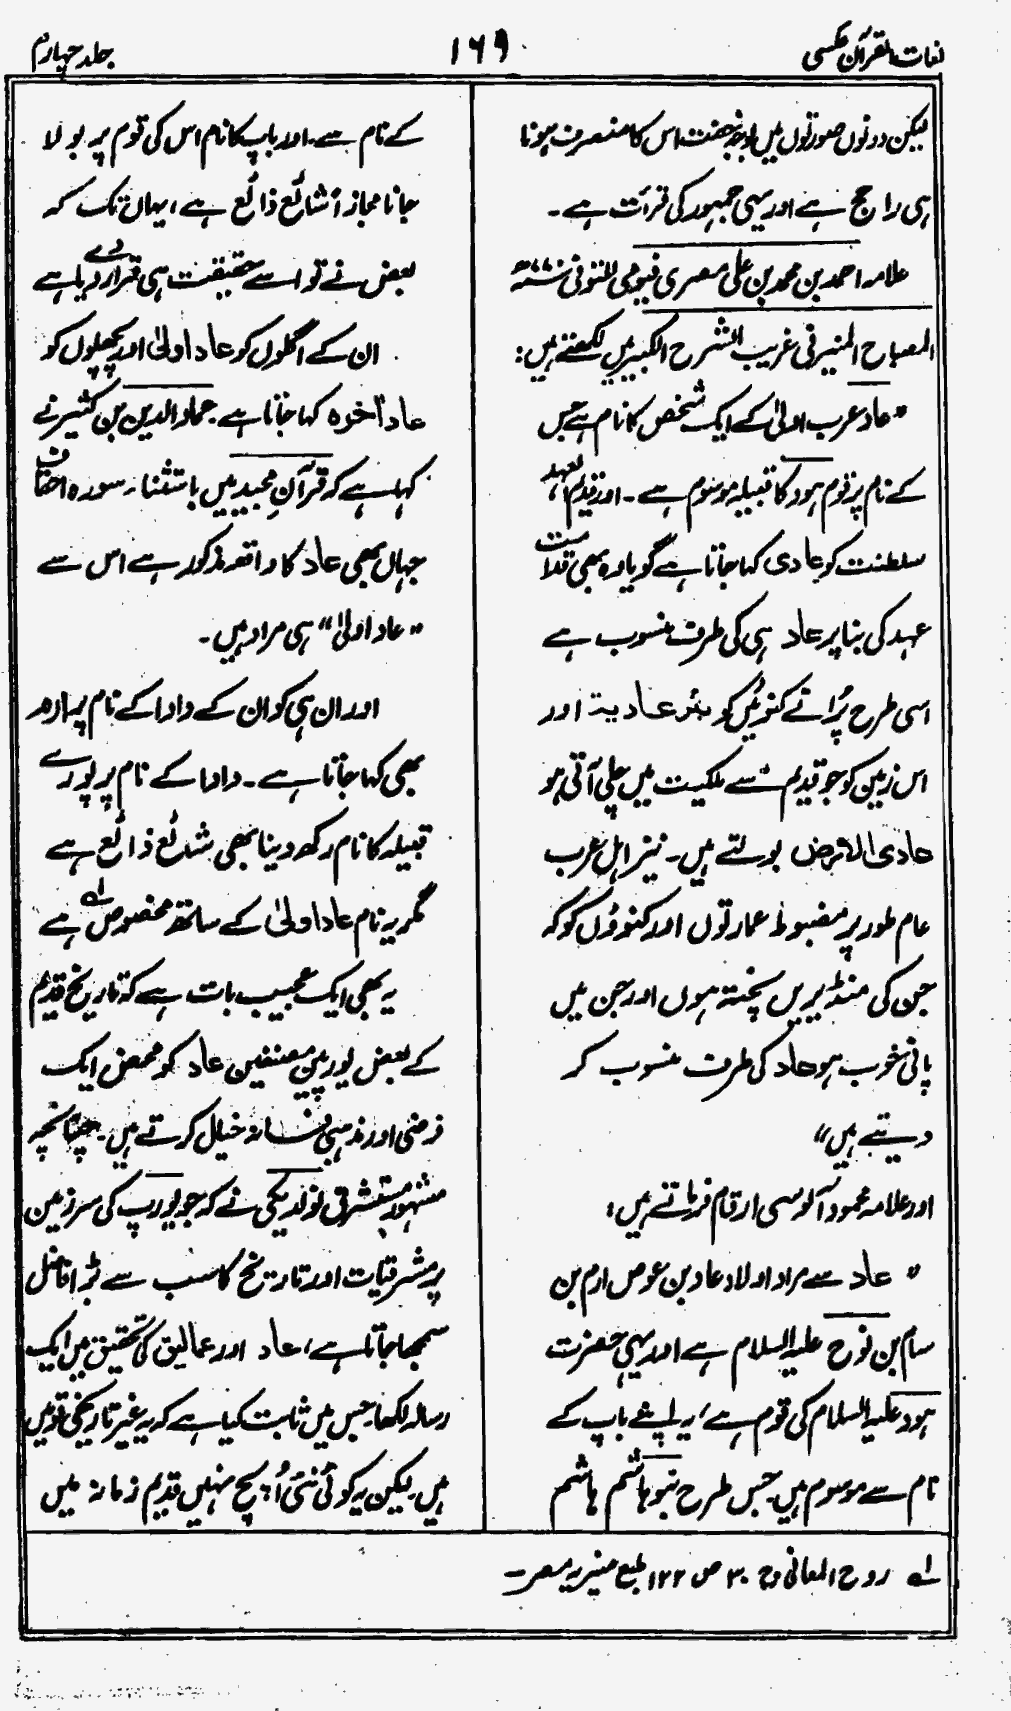 لغات القرآن عکسی
۱۶۹
جلد چہارم
لیکن دونوں صورتوں میں بوجہ خفت اس کا منصرف ہونا
ہی راجح ہے اور یہی جمہور کی قرأت ہے۔
علامہ احمد بن محمد بن علی مصری فیومی المتوفی ۷۷۰ھ
المصباح المنیر فی غریب الشرح الکبیر میں لکھتے ہیں:
"عاد عرب اولیٰ کے ایک شخص کا نام ہے جس
کے نام پر قوم ہود کا قبیلہ موسوم ہے۔ اور قدیم العہد
سلطنت کو عادی کہا جاتا ہے گویا وہ بھی قدامت
عہد کی بنا پر عاد ہی کی طرف منسوب ہے
اسی طرح پُرانے کنوئیں کو بئر عادیۃ اور
اس زمین کو جو قدیم سے ملکیت میں چلی آتی ہو
عادی الارض بولتے ہیں۔ نیز اہل عرب
عام طور پر مضبوط عمارتوں اور کنوؤں کو کہ
جن کی منڈیریں پختہ ہوں اور جن میں
پانی خوب ہو عاد کی طرف منسوب کر
دیتے ہیں"
اور علامہ محمود آلوسی ارقام فرماتے ہیں:
"عاد سے مراد اولاد عاد بن عوص ارم بن
سام بن نوح علیہ السلام ہے اور یہی حضرت
ہود علیہ السلام کی قوم ہے، یہ اپنے باپ کے
نام سے موسوم ہیں جس طرح بنو ہاشم ہاشم
کے نام سے۔ اور باپ کا نام اس کی قوم پر بولا
جانا مجازاً شائع ذائع ہے، یہاں تک کہ
بعض نے تو اسے حقیقت ہی قرار دے دیا ہے
ان کے اگلوں کو عاد اولیٰ اور پچھلوں کو
عاد آخرہ کہا جاتا ہے۔ عماد الدین بن کثیر نے
کہا ہے کہ قرآنِ مجید میں باستثناء سورہ احقاف
جہاں بھی عاد کا واقعہ مذکور ہے اس سے
"عاد اولیٰ" ہی مراد ہیں۔
اور ان ہی کو ان کے دادا کے نام پر ارم
بھی کہا جاتا ہے۔ دادا کے نام پر پورے
قبیلہ کا نام رکھ دینا بھی شائع ذائع ہے
مگر یہ نام عاد اولیٰ کے ساتھ مخصوص ہے لہ
یہ بھی ایک عجیب بات ہے کہ تاریخ قدیم
کے بعض یورپین مصنفین عاد کو محض ایک
فرضی اور مذہبی فسانہ خیال کرتے ہیں۔ چنانچہ
مشہور مستشرق نولدیکی نے کہ جو یورپ کی سرزمین
پر مشرقیات اور تاریخ کا سب سے بڑا فاضل
سمجھا جاتا ہے، عاد اور عمالیق کی تحقیق میں ایک
رسالہ لکھا جس میں ثابت کیا ہے کہ یہ غیر تاریخی قومیں
ہیں لیکن یہ کوئی نئی اُپج نہیں قدیم زمانہ میں
لہ روح المعانی ج ۳۰ ص ۱۲۲ طبع منیریہ مصر۔